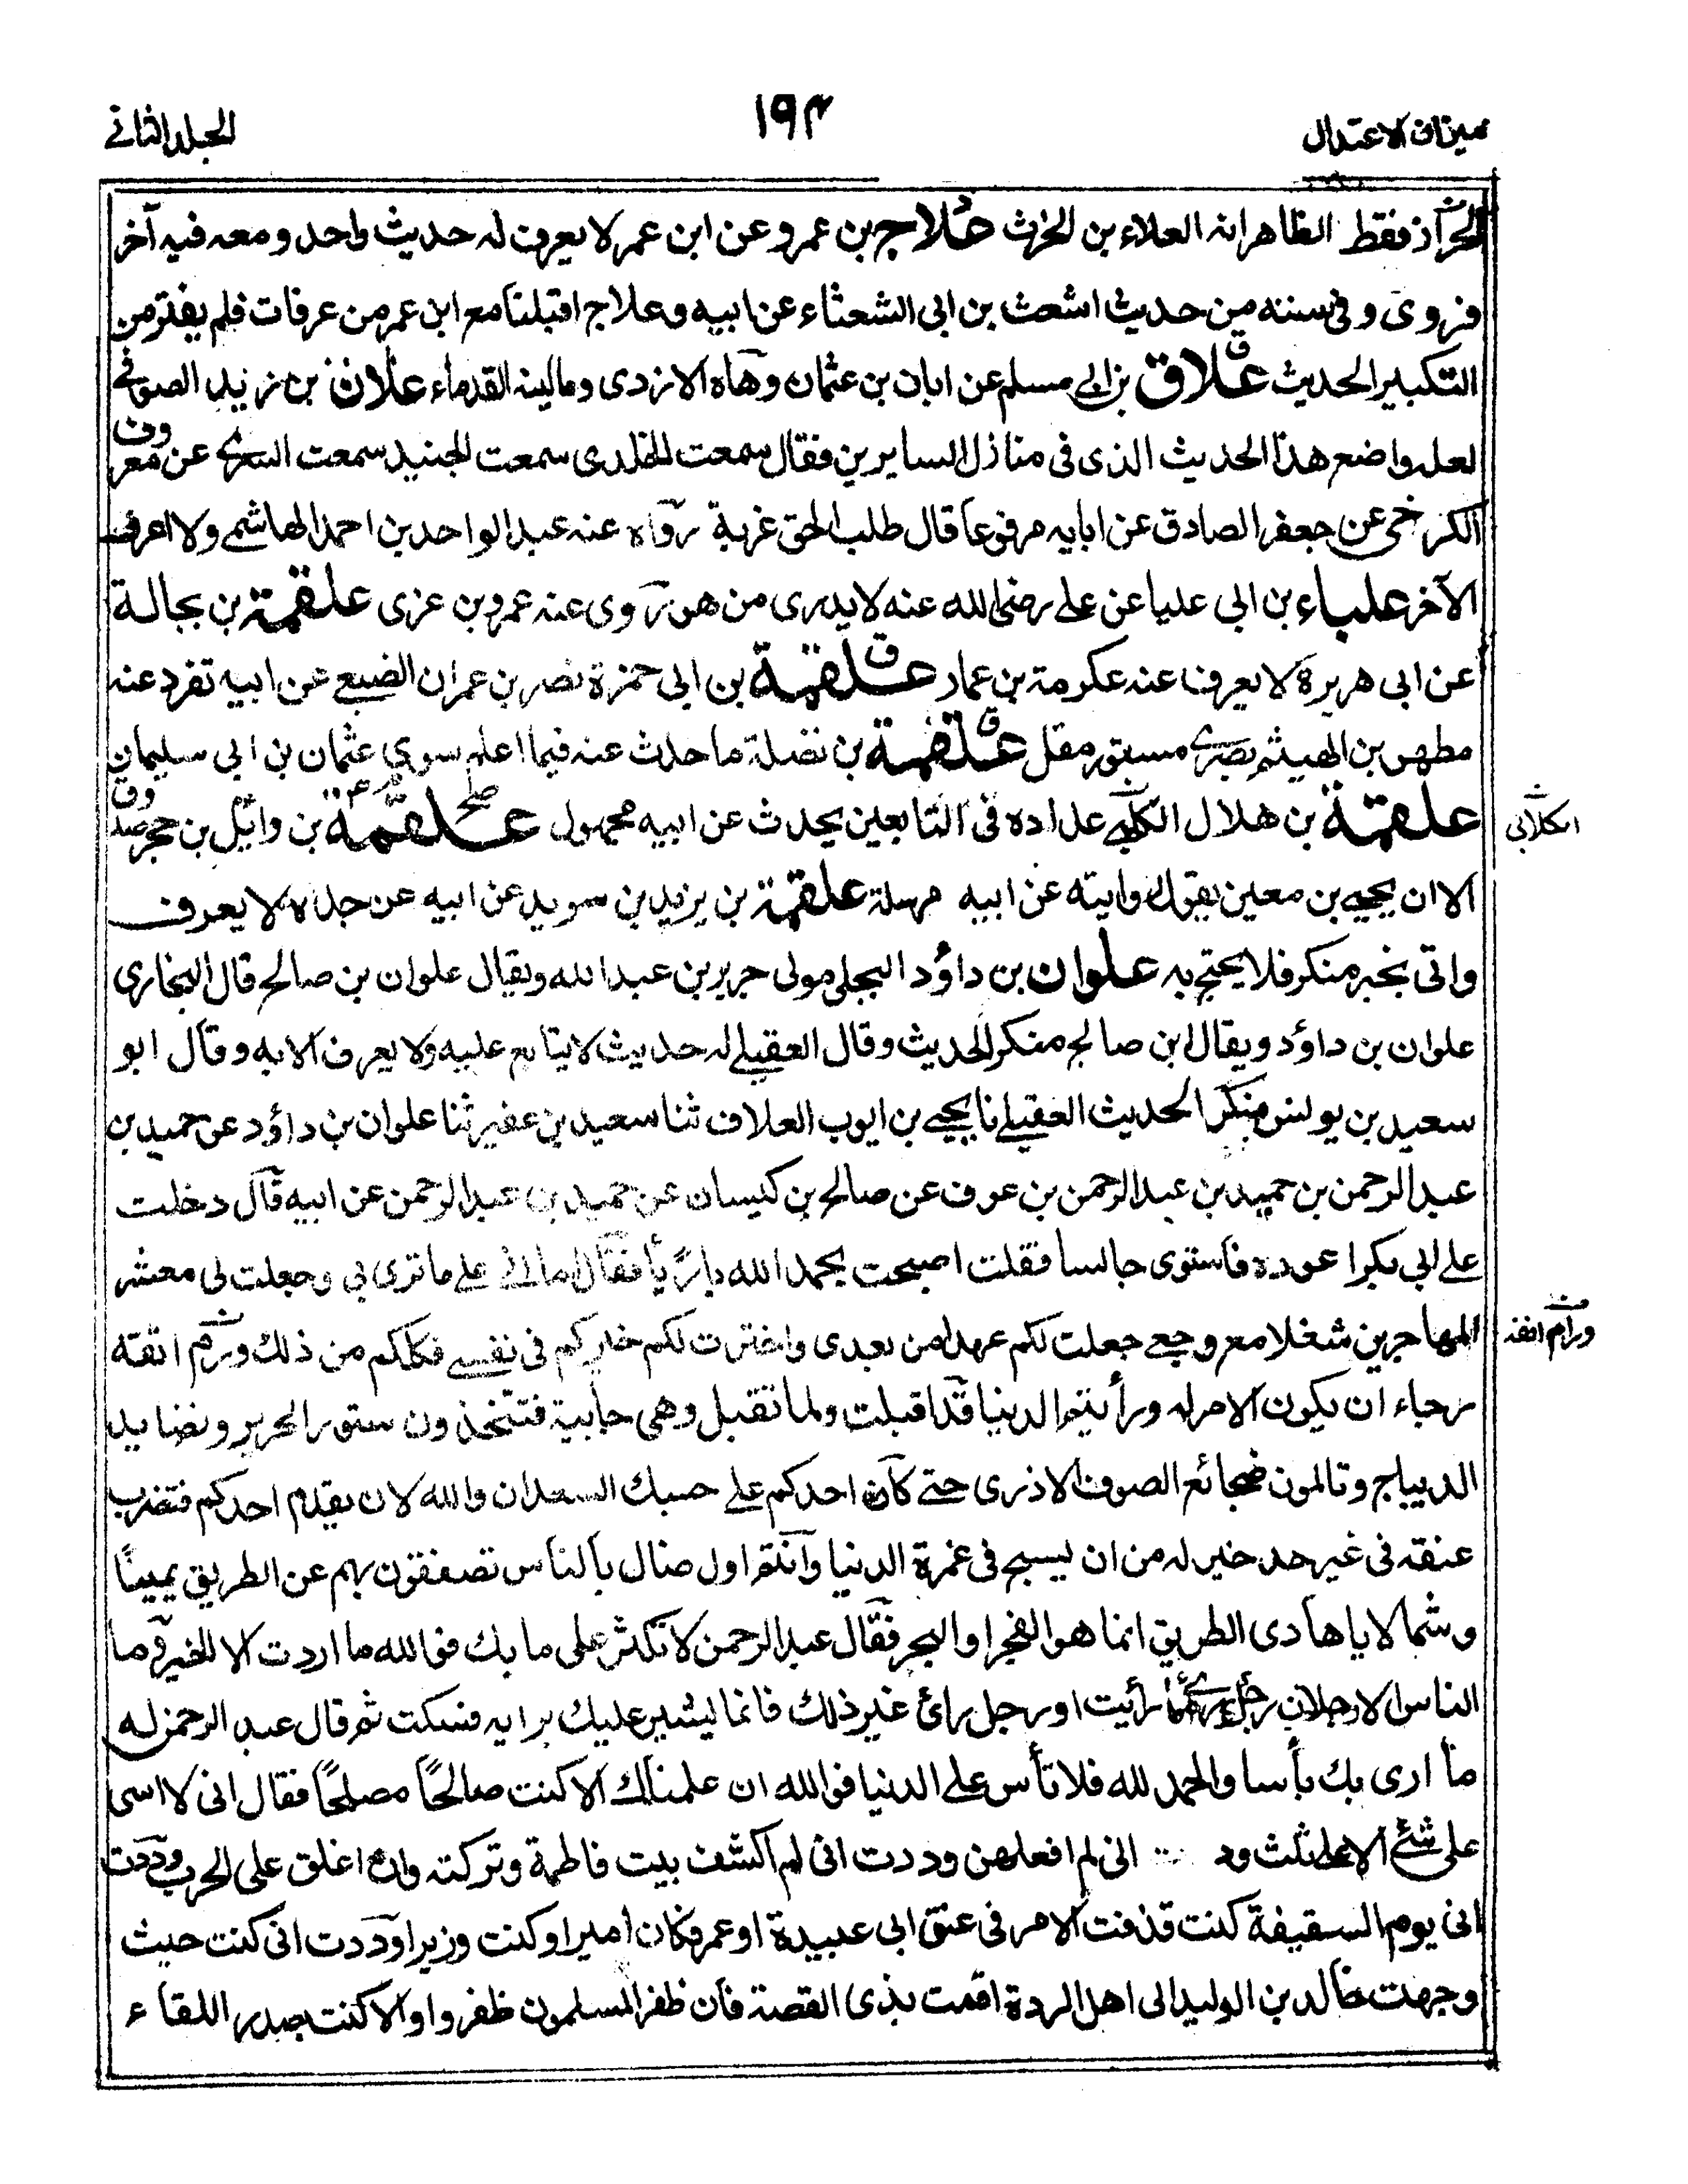 ميزان الاعتدال
١٩٣
الجلد الثاني
فقط الظاهر انه العلاء بن الحرث علاج بن عمرو عن ابن عمر لا يعرف له حديث واحد ومعه فيه آخر
فروى د في سننه من حديث اشعث بن ابى الشعثاء عن ابيه وعلاج اقبلنا مع ابن عمر من عرفات فلم يفتر من
التكبير الحديث علاق بن ابى مسلم عن ابان بن عثمان وهاه الازدى ومالينه القدماء علان بن زيد الصوفى
لعله واضع هذا الحديث الذى فى منازل السايرين فقال سمعت الخلدى سمعت الجنيد سمعت السرى عن معروف
الكرخى عن جعفر الصادق عن ابايه مرفوعا قال طلب الحق غربة رواه عنه عبد الواحد بن احمد الهاشمى ولا اعرف
الآخر علباء بن ابى عليا عن على رضى الله عنه لا يدرى من هو روى عنه عمرو بن عزى علقمة بن بجالة
عن ابى هريرة لا يعرف عنه عكرمة بن عمار علقمة بن ابى حمزة نصر بن عمران الضبعى عن ابيه تفرد عنه
مطهر بن الهيثم بصرى مستور مقل علقمة بن نضلة ما حدث عنه فيما اعلم سوى عثمان بن ابى سليمان
علقمة بن هلال الكلبى عداده فى التابعين يحدث عن ابيه مجهول علقمة بن وائل بن حجر صدوق
الكلابى
الا ان يحيى بن معين يقول روايته عن ابيه مرسلة علقمة بن يزيد بن سويد عن ابيه عن جده لا يعرف
واتى بخبر منكر فلا يحتج به علوان بن داؤد البجلى مولى جرير بن عبد الله ويقال علوان بن صالح قال البخارى
علوان بن داؤد ويقال ابن صالح منكر الحديث وقال العقيلى له حديث لا يتابع عليه ولا يعرف الا به وقال ابو
سعيد بن يونس منكر الحديث العقيلى نا يحيى بن ايوب العلاف ثنا سعيد بن عفير ثنا علوان بن داؤد عن حميد بن
عبد الرحمن بن حميد بن عبد الرحمن بن عوف عن صالح بن كيسان عن حميد بن عبد الرحمن عن ابيه قال دخلت
على ابى بكر اعوده فاستوى جالسا فقلت اصبحت بحمد الله بارئا فقال اما انى على ما ترى بى وجعلت لى معشر
المهاجرين شغلا مع وجعى جعلت لكم عهدا من بعدى واخترت لكم خيركم فى نفسى فكلكم من ذلك ورم انفه
ورام انفه
رجاء ان يكون الامر له ورأيتم الدنيا قد اقبلت ولما تقبل وهى جايية فتتخذون ستور الحرير ونضايد
الديباج وتالمون ضجائع الصوف الاذرى حتى كان احدكم على حسك السعدان والله لان يقدم احدكم فتضرب
عنقه فى غير حد خير له من ان يسبح فى غمرة الدنيا وانتم اول ضال بالناس تصفقون بهم عن الطريق يمينا
وشمالا يا هادى الطريق انما هو الفجر او البحر فقال عبد الرحمن لا تكثر على ما بك فوالله ما اردت الا الخير وما
الناس الا رجلان رجل رأى ما رأيت او رجل رائ غير ذلك فانما يشير عليك برايه فسكت ثم قال عبد الرحمن له
ما ارى بك بأسا والحمد لله فلا تأس على الدنيا فوالله ان علمناك الا كنت صالحًا مصلحًا فقال انى لا اسى
على شئ الا على ثلث انى لم افعلهن وددت انى لم اكشف بيت فاطمة وتركته وان اغلق على الحرب وددت
انى يوم السقيفة كنت قذفت الامر فى عنق ابى عبيدة او عمر فكان اميرا وكنت وزيرا وددت انى كنت حيث
وجهت خالد بن الوليد الى اهل الردة اقمت بذى القصة فان ظفر المسلمون ظفروا والا كنت بصدر اللقاء